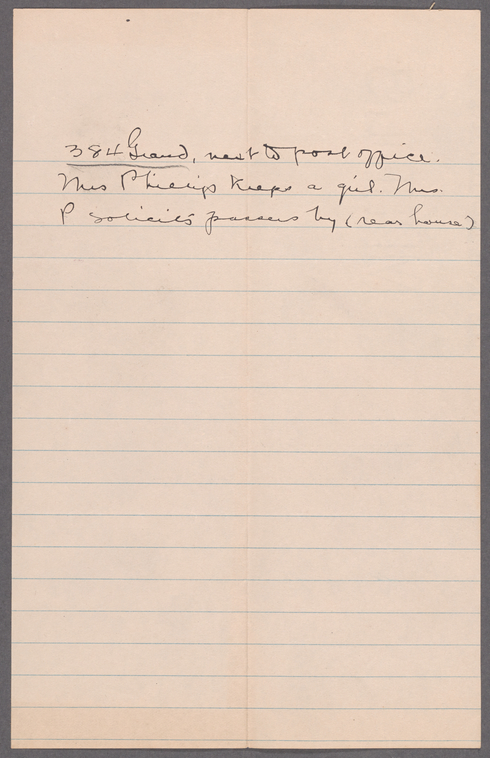 384 Grand, next to post office.
Mrs Phillips keeps a girl. Mrs.
P solicits passers by (rear house)